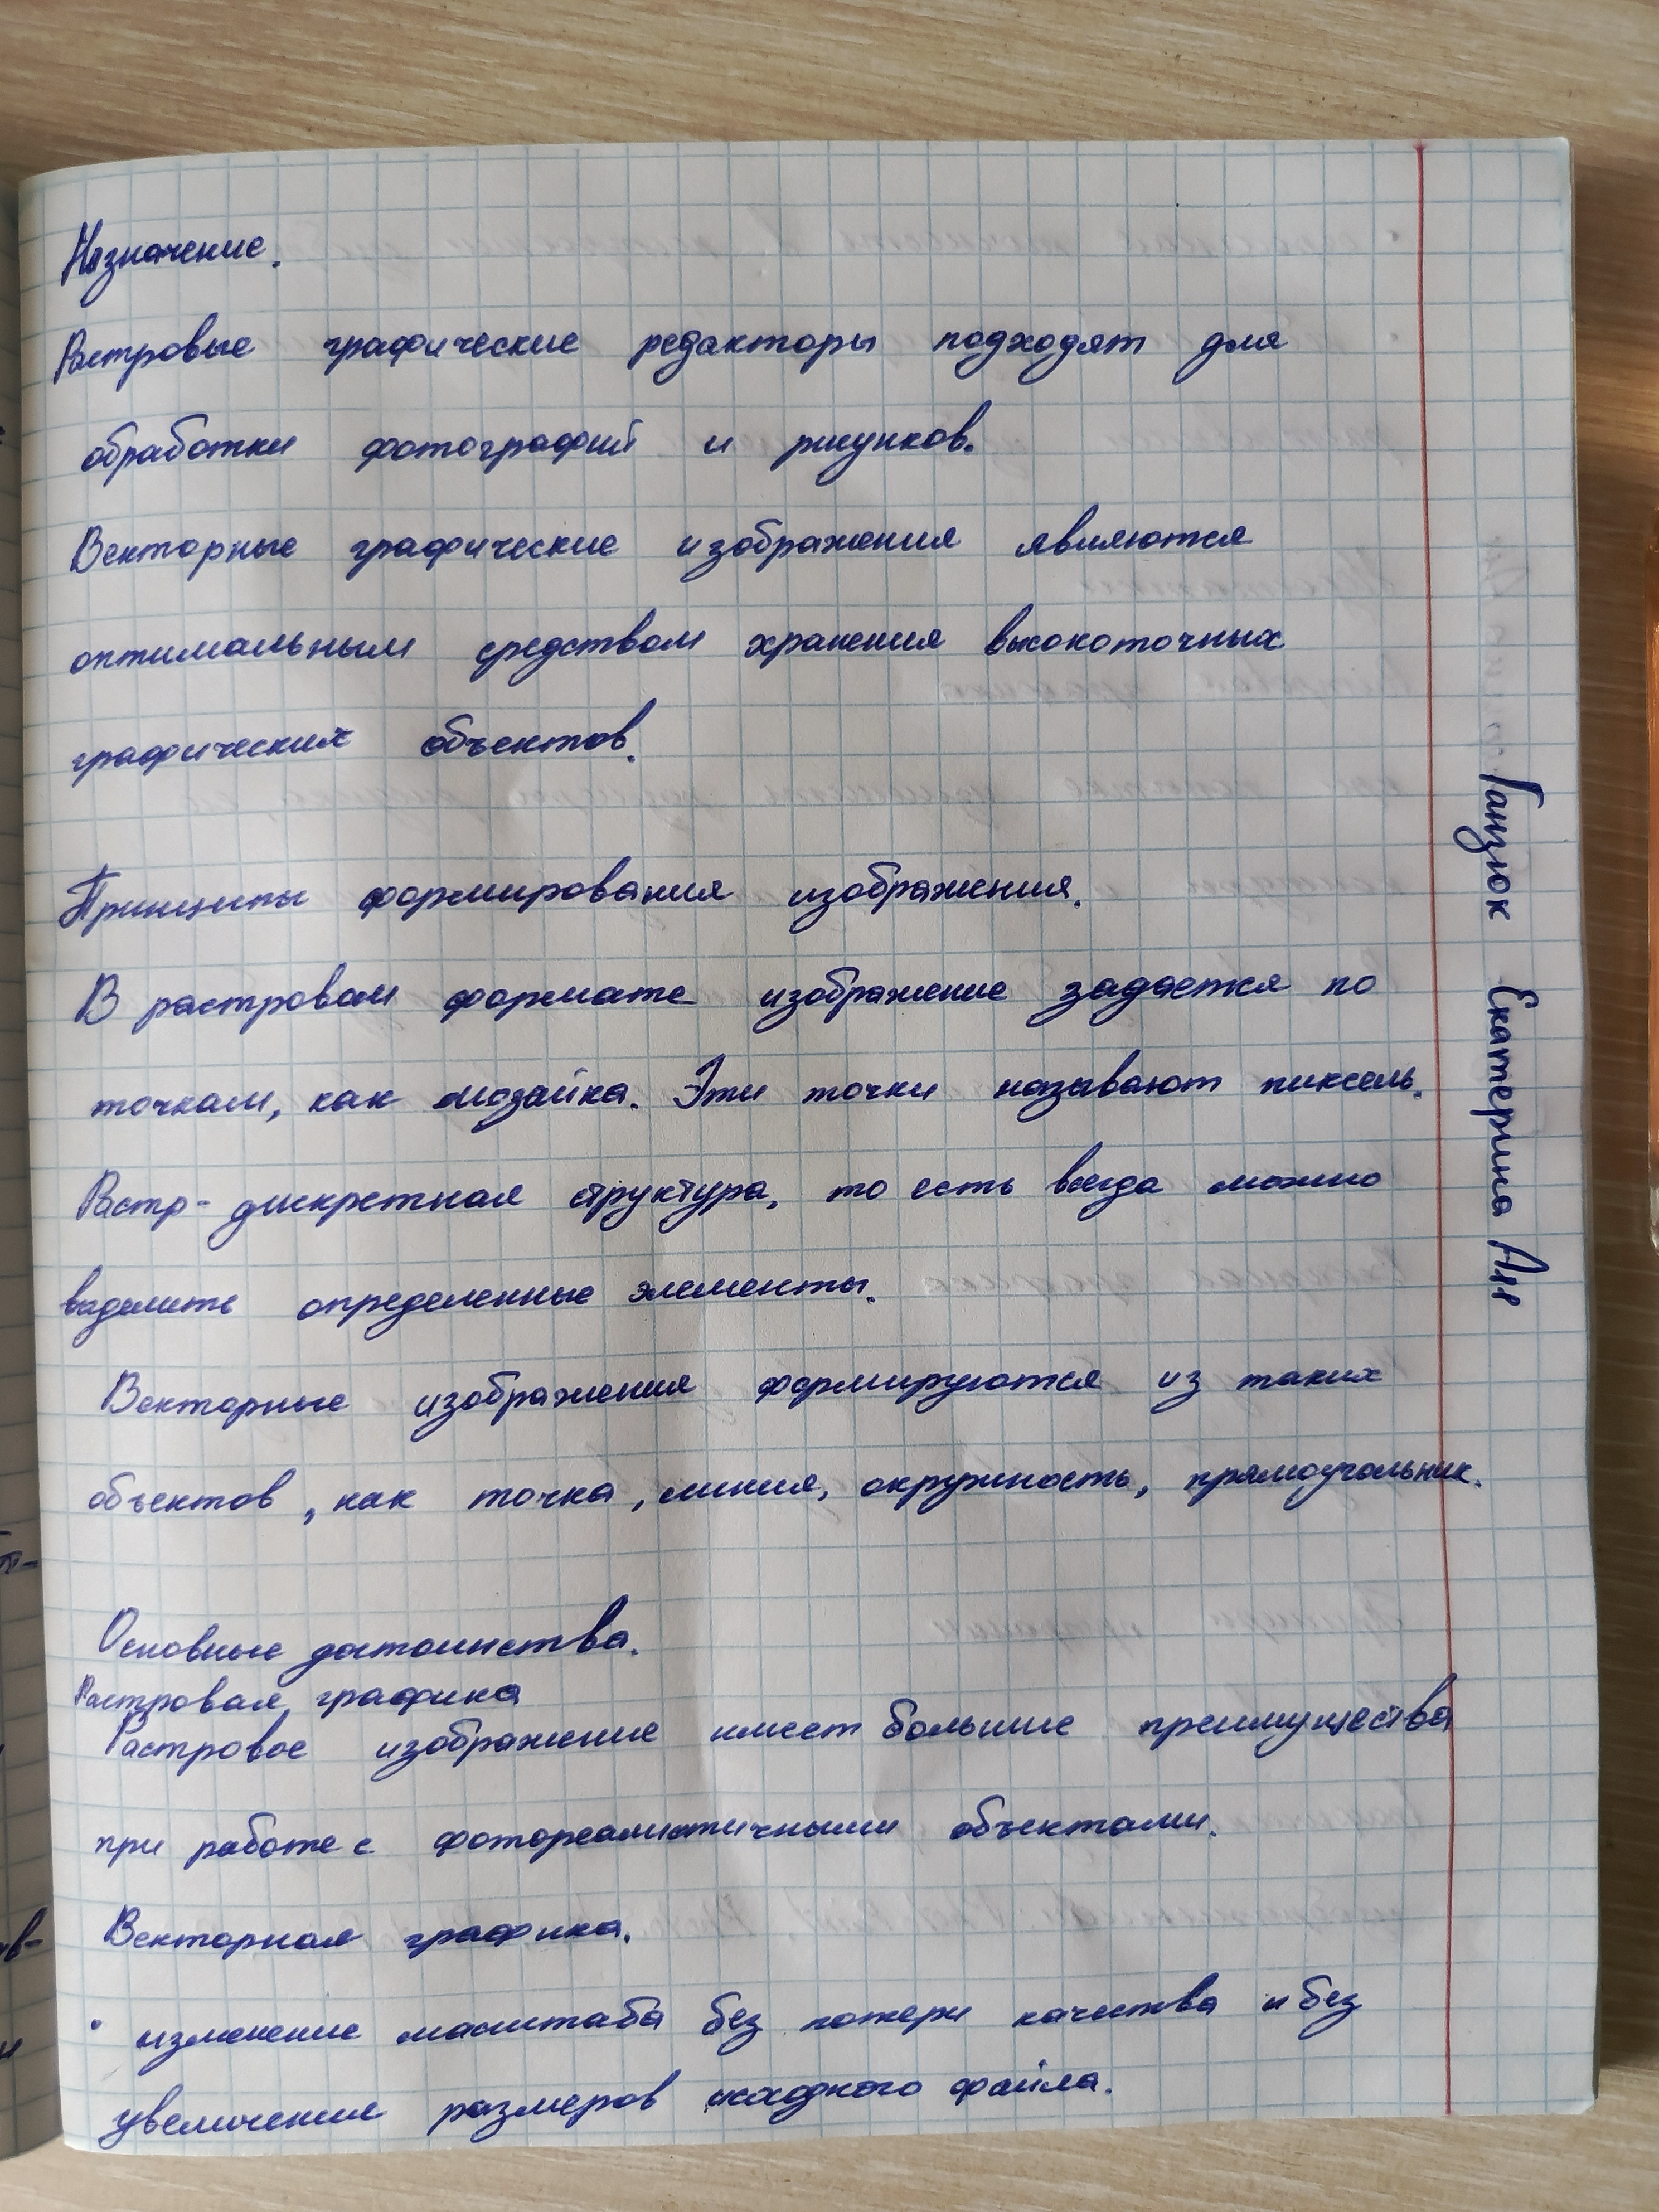 Назначение.
Растровые графические редакторы подходят для
обработки фотографий и рисунков.
Векторные графические изображения являются
оптимальным средством хранения высокоточных
графических объектов.
Принципы формирования изображения.
В растровом формате изображение задается по
точкам, как мозайка. Эти точки называют пиксель.
Растр - дискретная структура, то есть всегда можно
выделить определенные элементы.
Векторные изображения формируются из таких
объектов, как точка, линия, окружность, прямоугольник.
Основные достоинства.
Растровая графика
Растровое изображение имеет большие преимущества
при работе с фотореалистичными объектами.
Векторная графика.
• изменение масштаба без потери качества и без
увеличения размеров исходного файла.
Ганзюк Екатерина